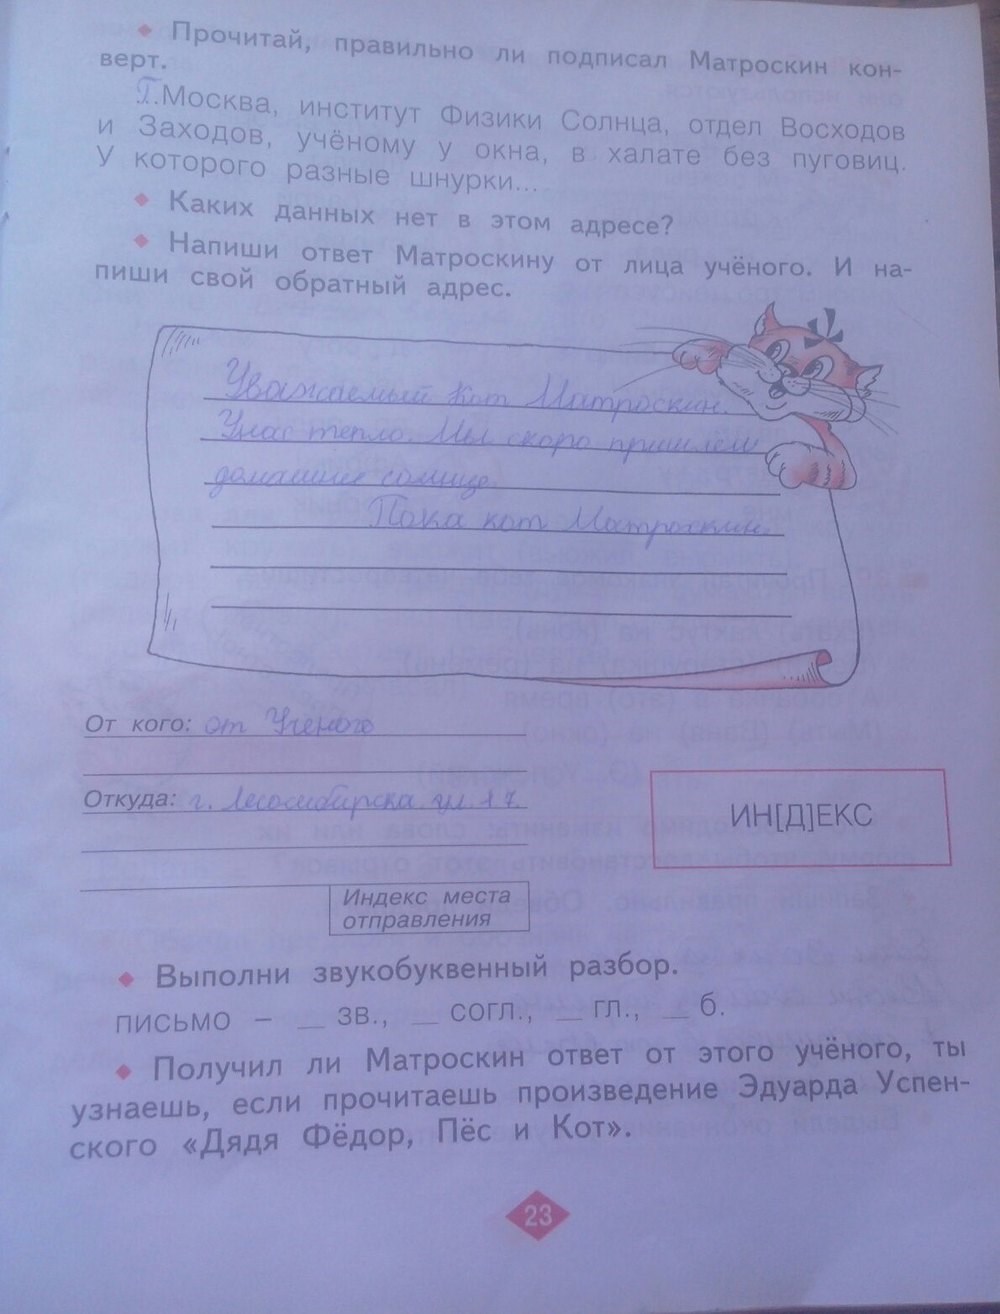 Прочитай, правильно ли подписал Матроскин кон-
верт.
Г.Москва, институт Физики Солнца, отдел Восходов
и Заходов, учёному у окна, в халате без пуговиц.
У которого разные шнурки...
Каких данных нет в этом адресе?
Напиши ответ Матроскину от лица учёного. И на-
пиши свой обратный адрес.
Уважаемый Кот Матроскин.
Унас тепло. Мы скоро пришлём
домашние солнце
Пока кот Матроскин.
От кого: от Ученого
Откуда: г. Лесосибирска ул 17
ИН[Д]ЕКС
Индекс места
отправления
Выполни звукобуквенный разбор.
ПИСЬМО – __ ЗВ., __ СОГЛ., __ ГЛ., __ Б.
Получил ли Матроскин ответ от этого учёного, ты
узнаешь, если прочитаешь произведение Эдуарда Успен-
ского «Дядя Фёдор, Пёс и Кот».
23